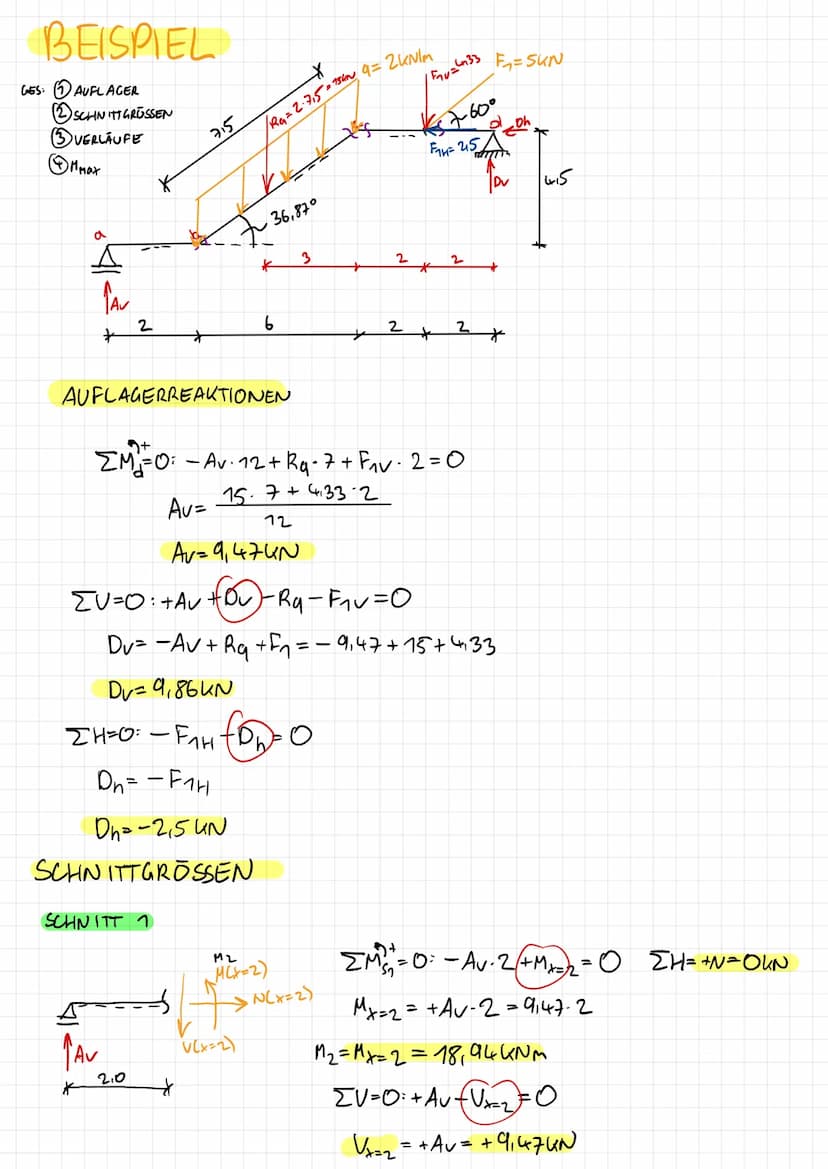 BEISPIEL
GES: ① AUFLAGER
② SCHNITTGRÖSSEN
③ VERLÄUFE
④ Mmax
7,5
Rq = 2·7,5 = 15kN
q = 2kN/m
F1V = 4,33
F1 = 5kN
60°
F1H = 2,5
d
Dh
Dv
4,5
36,87°
a
b
Av
3 2 2
2 6 2 2
AUFLAGERREAKTIONEN
ΣMd=0: -Av·12 + Rq·7 + F1V·2 = 0
Av = 15·7 + 4,33·2 / 12
Av = 9,47kN
ΣV=0: +Av + Dv - Rq - F1V = 0
Dv = -Av + Rq + F1 = -9,47 + 15 + 4,33
Dv = 9,86kN
ΣH=0: - F1H - Dh = 0
Dh = - F1H
Dh = -2,5kN
SCHNITTGRÖSSEN
SCHNITT 1
ΣMS1=0: -Av·2 + Mx=2 = 0 ΣH= +N=0kN
M2
M(x=2)
N(x=2)
V(x=2)
Av
2,0
Mx=2 = +Av·2 = 9,47·2
M2 = Mx=2 = 18,94kNm
ΣV=0: +Av - Vx=2 = 0
Vx=2 = +Av = +9,47kN